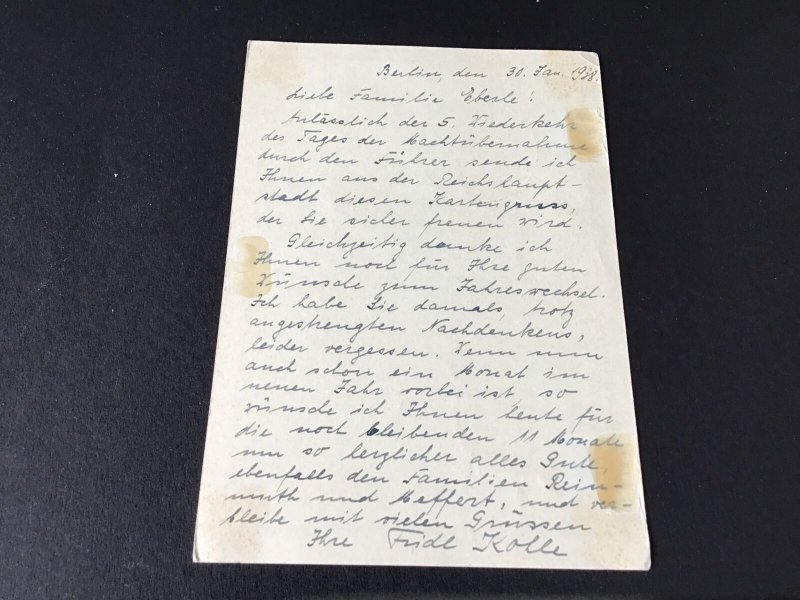 Berlin, den 30. Jan. 1938.
Liebe Familie Eberle!
Anlässlich der 5. Wiederkehr
des Tages der Machtübernahme
durch den Führer sende ich
Ihnen aus der Reichshaupt-
stadt diesen Kartengruss,
der Sie sicher freuen wird.
Gleichzeitig danke ich
Ihnen noch für Ihre guten
Wünsche zum Jahreswechsel.
Ich habe Sie damals, trotz
angestrengten Nachdenkens,
leider vergessen. Wenn nun
auch schon ein Monat im
neuen Jahr vorbei ist, so
wünsche ich Ihnen heute für
die noch bleibenden 11 Monate
um so herzlicher alles Gute,
ebenfalls den Familien Rein-
muth und Meffert, und ver-
bleibe mit vielen Grüssen
Ihre Fridl Kolle